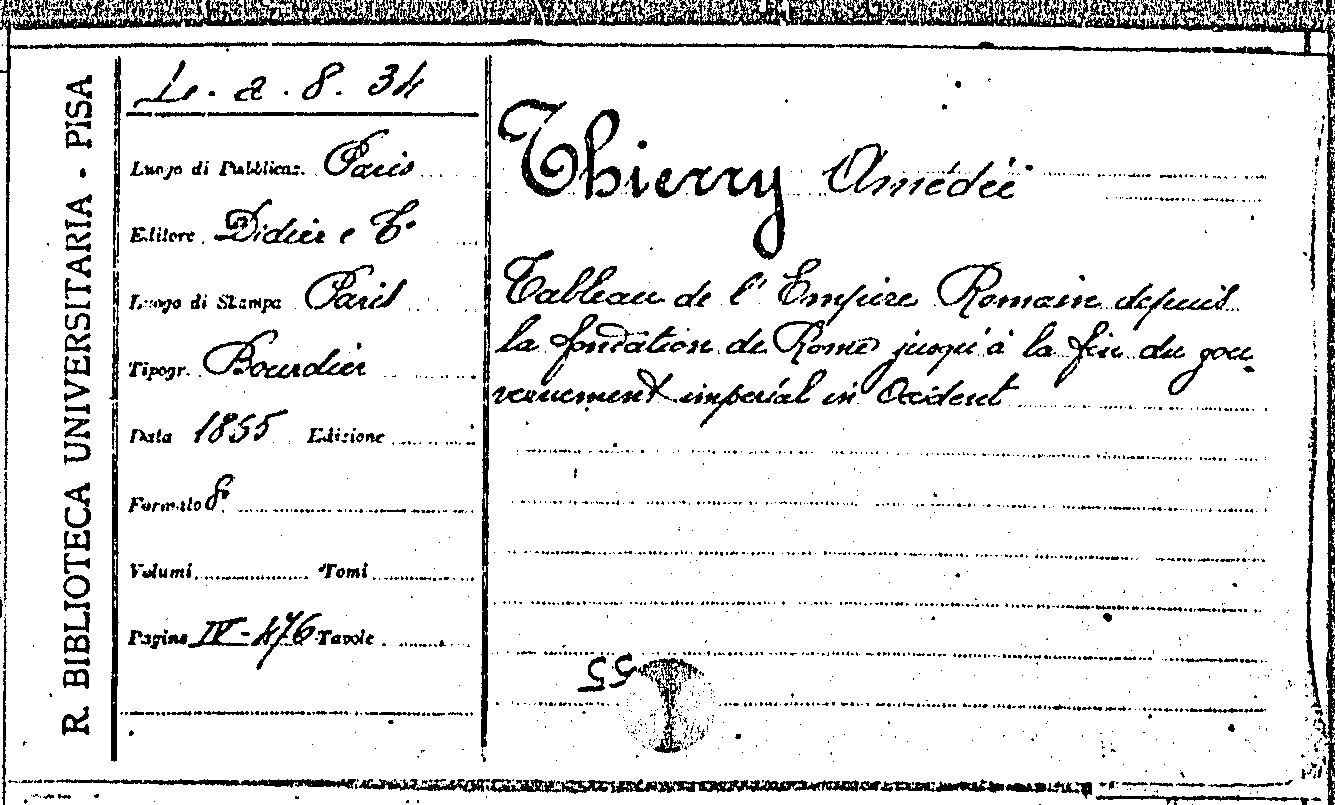 R. BIBLIOTECA UNIVERSITARIA - PISA
L. a. 8. 34
Luogo di Pubblicaz. Paris
Editore Didier e C.
Luogo di Stampa Paris
Tipogr. Bourdier
Data 1855 Edizione
Formato 8°
Volumi Tomi
Pagine IV-476 Tavole
Thierry Amédée
Tableau de l' Empire Romain depuis
la fondation de Rome jusqu'à la fin du gou-
vernement impérial in Occident
55